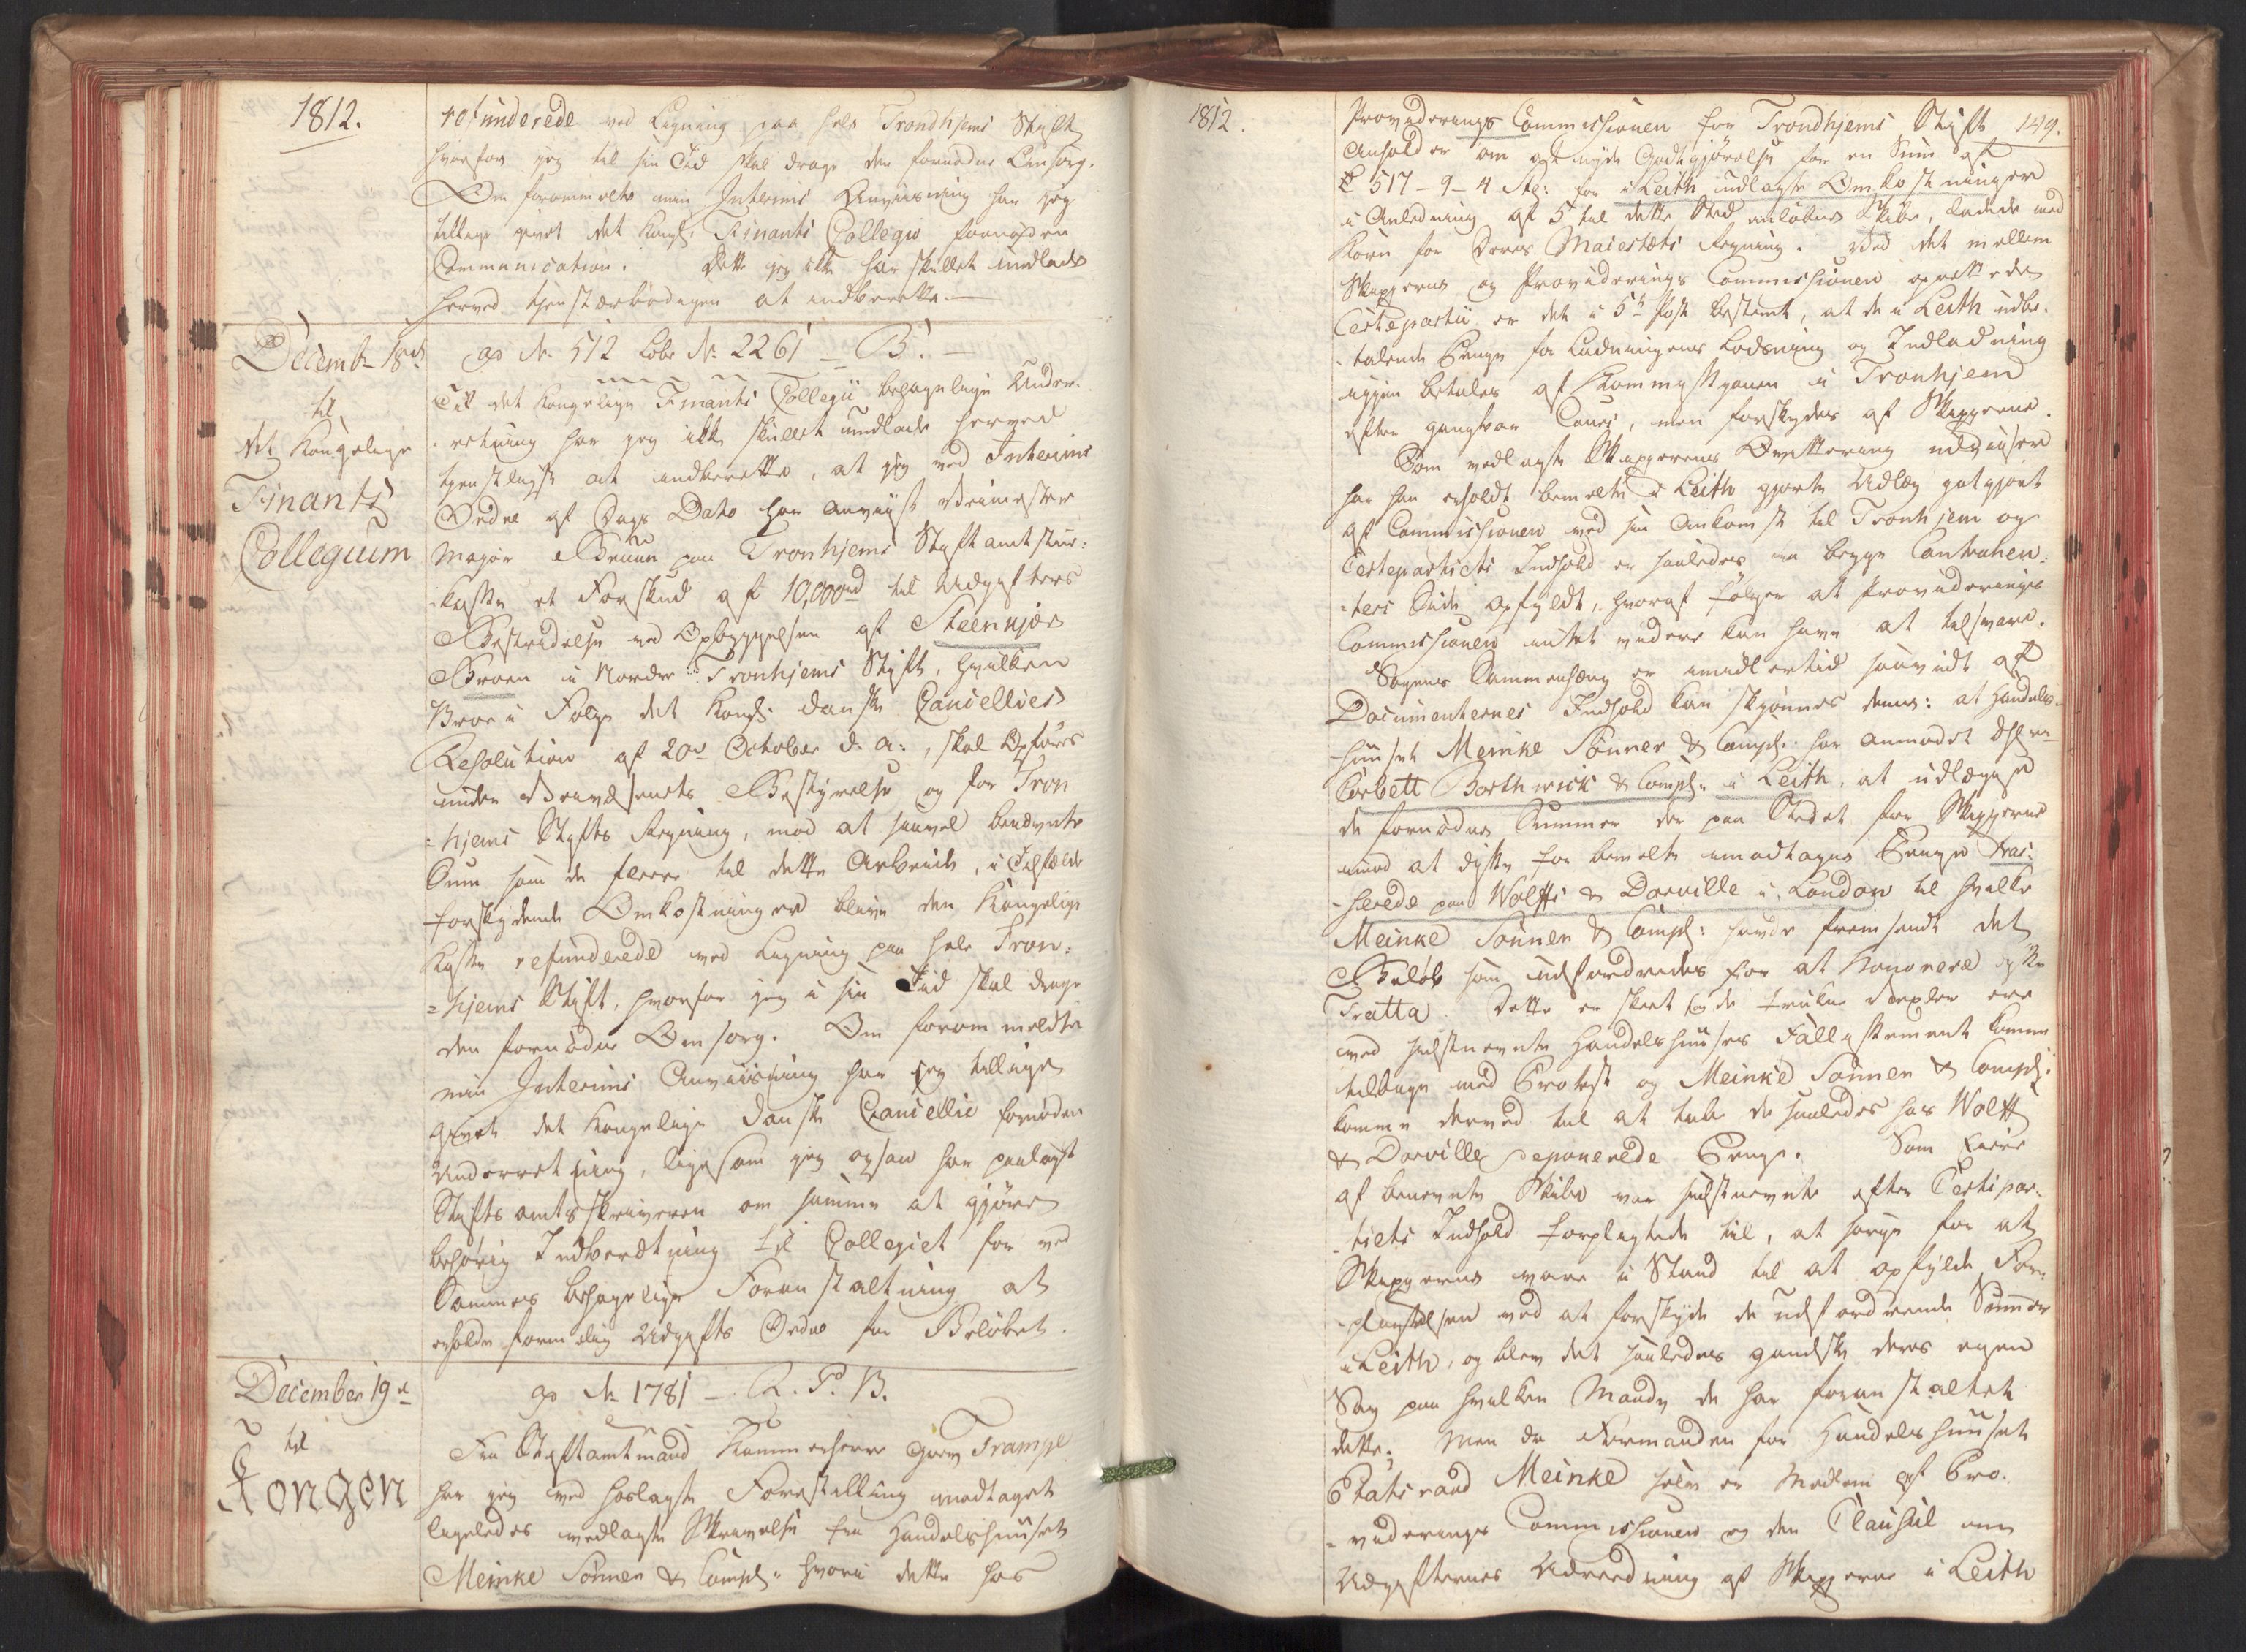 1812.
refunderede ved Ligning paa hele Trondhjems Stift
hvorfor jeg til sin Tid skal drage den fornødne Omsorg.
Om forommeldte min Interims Anviisning har jeg
tillige givet det Kongl: Finants Collegio fornøden
Communication. Dette jeg ikke har skullet undlade
herved tienstærbødigen at indberette.
Decemb 18d
ges No 512 Løbe No 2261 - B.
til
det Kongelige
Finants
Collegium
Til det Kongelige Finants Collegii behagelige Under-
retning har jeg ikke skullet undlade herved
tjenstligst at indberette, at jeg ved Interims
Ordre af Dags Dato har anviist Veimester
Major Bruun paa Tronhjems Stiftamtstue-
kasse et Forskud af 10,000rd til Udgifters
Bestridelse ved Opbyggelsen af Steenkjær
Broen i Nordre Tronhjems Stift, hvilken
Broe i Følge det Kongl: danske Cancellies
Resolution af 20de October d. A:, skal opføres
under Veivæsenets Bestyrelse og for Tron
=hjems Stifts Regning, mod at saavel benævnte
Sum som de flere til dette Arbeide, i Tilfælde
forskydende Omkostninger blive den Kongelige
Kasse refunderede ved Ligning paa hele Tron=
=hjems Stift, hvorfor jeg i sin Tid skal drage
den fornødne Omsorg. Om forommeldte
min Interims Anviisning har jeg tillige
givet det Kongelige danske Cancellie fornøden
Underretning, ligesom jeg ogsaa har paalagt
Stiftsamtsskriveren om samme at gjøre
behørig Indberetning til Collegiet for ved
Sammes behagelige Foranstaltning at
erholde formelig Udgifts Ordre for Beløbet.
December 19d
ges No 1781 - R. P. B.
til
Kongen
Fra Stiftamtmand Kammerherre Grev Trampe
har jeg ved hoslagte Forestilling modtaget
ligeledes vedlagte Skrivelse fra Handelshuuset
Meinke Sønner & Comp: hvori dette hos
1812.
149.
Provideringscommissionen for Trondhjems Stift
anholder om at nyde Godtgjørelse for en Sum af
£ 517-9-4 Ste: for i Leith udlagte Omkostninger
i Anledning af 5 til dette Sted anløbne Skibe, ladede med
Korn for Deres Maiestæts Regning. Ved det mellem
Skipperne og Providerings Commissionen oprettede
Certepartie er det i 5te Post bestemt, at de i Leith udbe-
talende Penge for Ladningens Losning og Indladning
igjen betales af Kommissionen i Tronhjem
efter gangbar Cours, men forskydes af Skipperne.
Som vedlagte Skippernes Qvittering udviser
har han erholdt bemeldte i Leith gjorte Udlæg gotgjort
af Commissionen ved sin Ankomst til Tronhjem og
Certepartiets Indhold er saaledes paa begge Contrahen-
ters Side opfyldt, hvoraf følger at Providerings
Commissionen intet videre kan have at tilsvare.
Sagens Sammenhæng er imidlertid saavidt af
Documenternes Indhold kan skjønnes denne: at Handels-
huuset Meinke Sønner & Comp: har anmodet DHrr
Corbett Borthwick & Comp: i Leith, at udlægge
de fornødne Summer der paa Stedet for Skipperne
imod at disse for bemeldte modtagne Penge tras-
serede paa Wolffs & Dorville i London til hvilke
Meinke Sønner & Comp: havde fremsendt det
Beløb som udfordredes for at honorere disse
Tratta. Dette er skeet og de trukne Vexler ere
ved sidstnevnte Handelshuuses Fallissement komne
tilbage med Protest og Meinke Sønner & Comp:
komme derved til at tabe de saaledes hos Wolff
& Dorville deponerede Penge. Som Eiere
af benevnte Skibe var sidstnevnte efter Certipar-
tiets Indhold forpligtede til, at sørge for at
Skipperne vare i Stand til at opfylde For-
pligtelsen ved at forskyde de udfordrende Summer
i Leith, og blev det saaledes gandske deres egen
Sag paa hvilken Maade de har foranstaltet
dette; Men da Formanden for Handelshuuset
Etatsraad Meinke selv er Medlem af Pro-
viderings Commissionen og den Clausul om
Udgifternes Udreedning af Skipperne i Leith